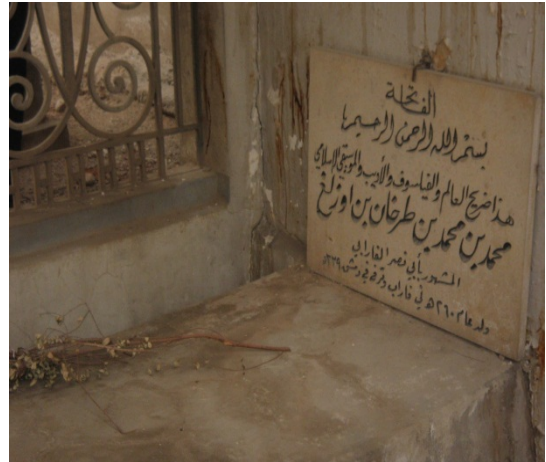 الفاتحة
بسم الله الرحمن الرحيم
هذا ضريح العالم والفيلسوف والأديب والموسيقي الإسلامي
محمد بن محمد بن طرخان بن اوزلغ
المشهور بأبي نصر الفارابي
ولد عام ٢٦٠ هـ في فاراب وتوفي في دمشق ٣٣٩هـ